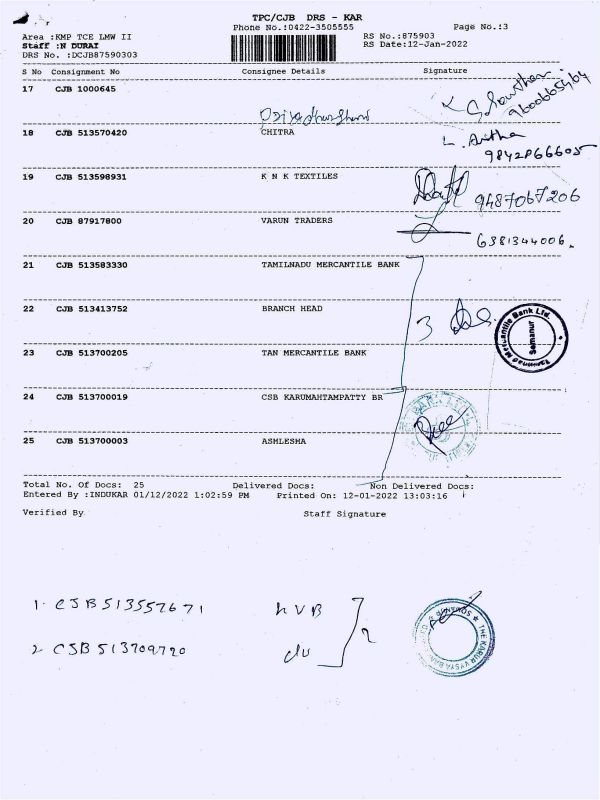 TPC/CJB DRS - KAR
Phone No.:0422-3505555 Page No.:3
Area :KMP TCE LMW II RS No.:875903
Staff :N DURAI RS Date:12-Jan-2022
DRS No. :DCJB87590303
S No Consignment No Consignee Details Signature
17 CJB 1000645
9600665464
18 CJB 513570420 CHITRA
L. Anitha
9842P66605
19 CJB 513598931 K N K TEXTILES
9487067206
20 CJB 87917800 VARUN TRADERS
6381344006.
21 CJB 513583330 TAMILNADU MERCANTILE BANK
22 CJB 513413752 BRANCH HEAD
3
Tamilnad Mercantile Bank Ltd.
Semanur
23 CJB 513700205 TAN MERCANTILE BANK
24 CJB 513700019 CSB KARUMAHTAMPATTY BR
25 CJB 513700003 ASHLESHA
Total No. Of Docs: 25 Delivered Docs: Non Delivered Docs:
Entered By :INDUKAR 01/12/2022 1:02:59 PM Printed On: 12-01-2022 13:03:16
Verified By Staff Signature
1. CJB513557671 KVB
2. CJB513709720 du
2
THE KARUR VYSYA BANK